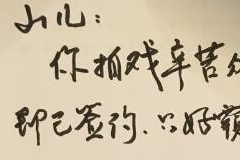 山儿:
你拍戏辛苦
即已签约、只好